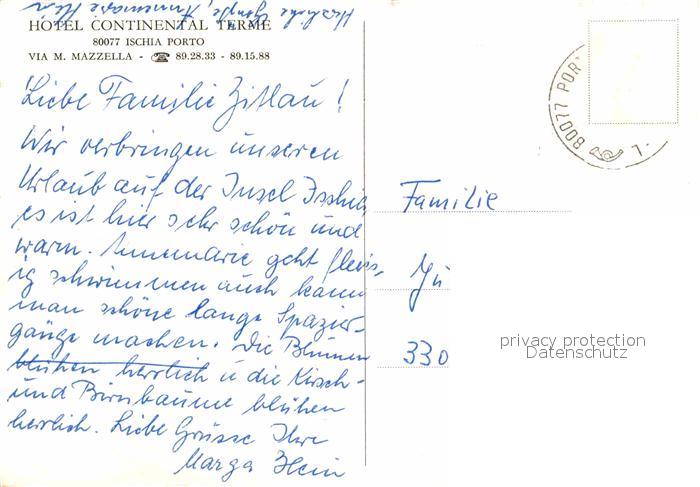 Herzliche Grüße, Annemarie Hein
HOTEL CONTINENTAL TERME
80077 ISCHIA PORTO
VIA M. MAZZELLA - ☎ 89.28.33 - 89.15.88
Liebe Familie Zittau!
Wir verbringen unseren
Urlaub auf der Insel Ischia,
es ist hier sehr schön und
warm. Annemarie geht fleis-
ig schwimmen auch kann
man schöne lange Spazier-
gänge machen. Die Blumen
blühen herrlich u die Kirsch-
und Birnbäume blühen
herrlich. Liebe Grüsse Ihre
Marga Hein
80077 POR
Familie
Jü
330
privacy protection
Datenschutz